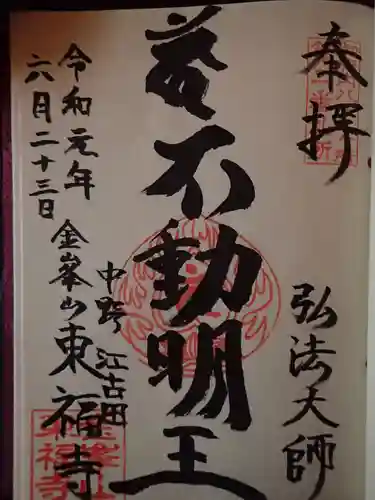 奉拝
弘法大師
不動明王
中野 江古田
金峯山 東福寺
令和元年
六月二十三日
金峯山
東福寺